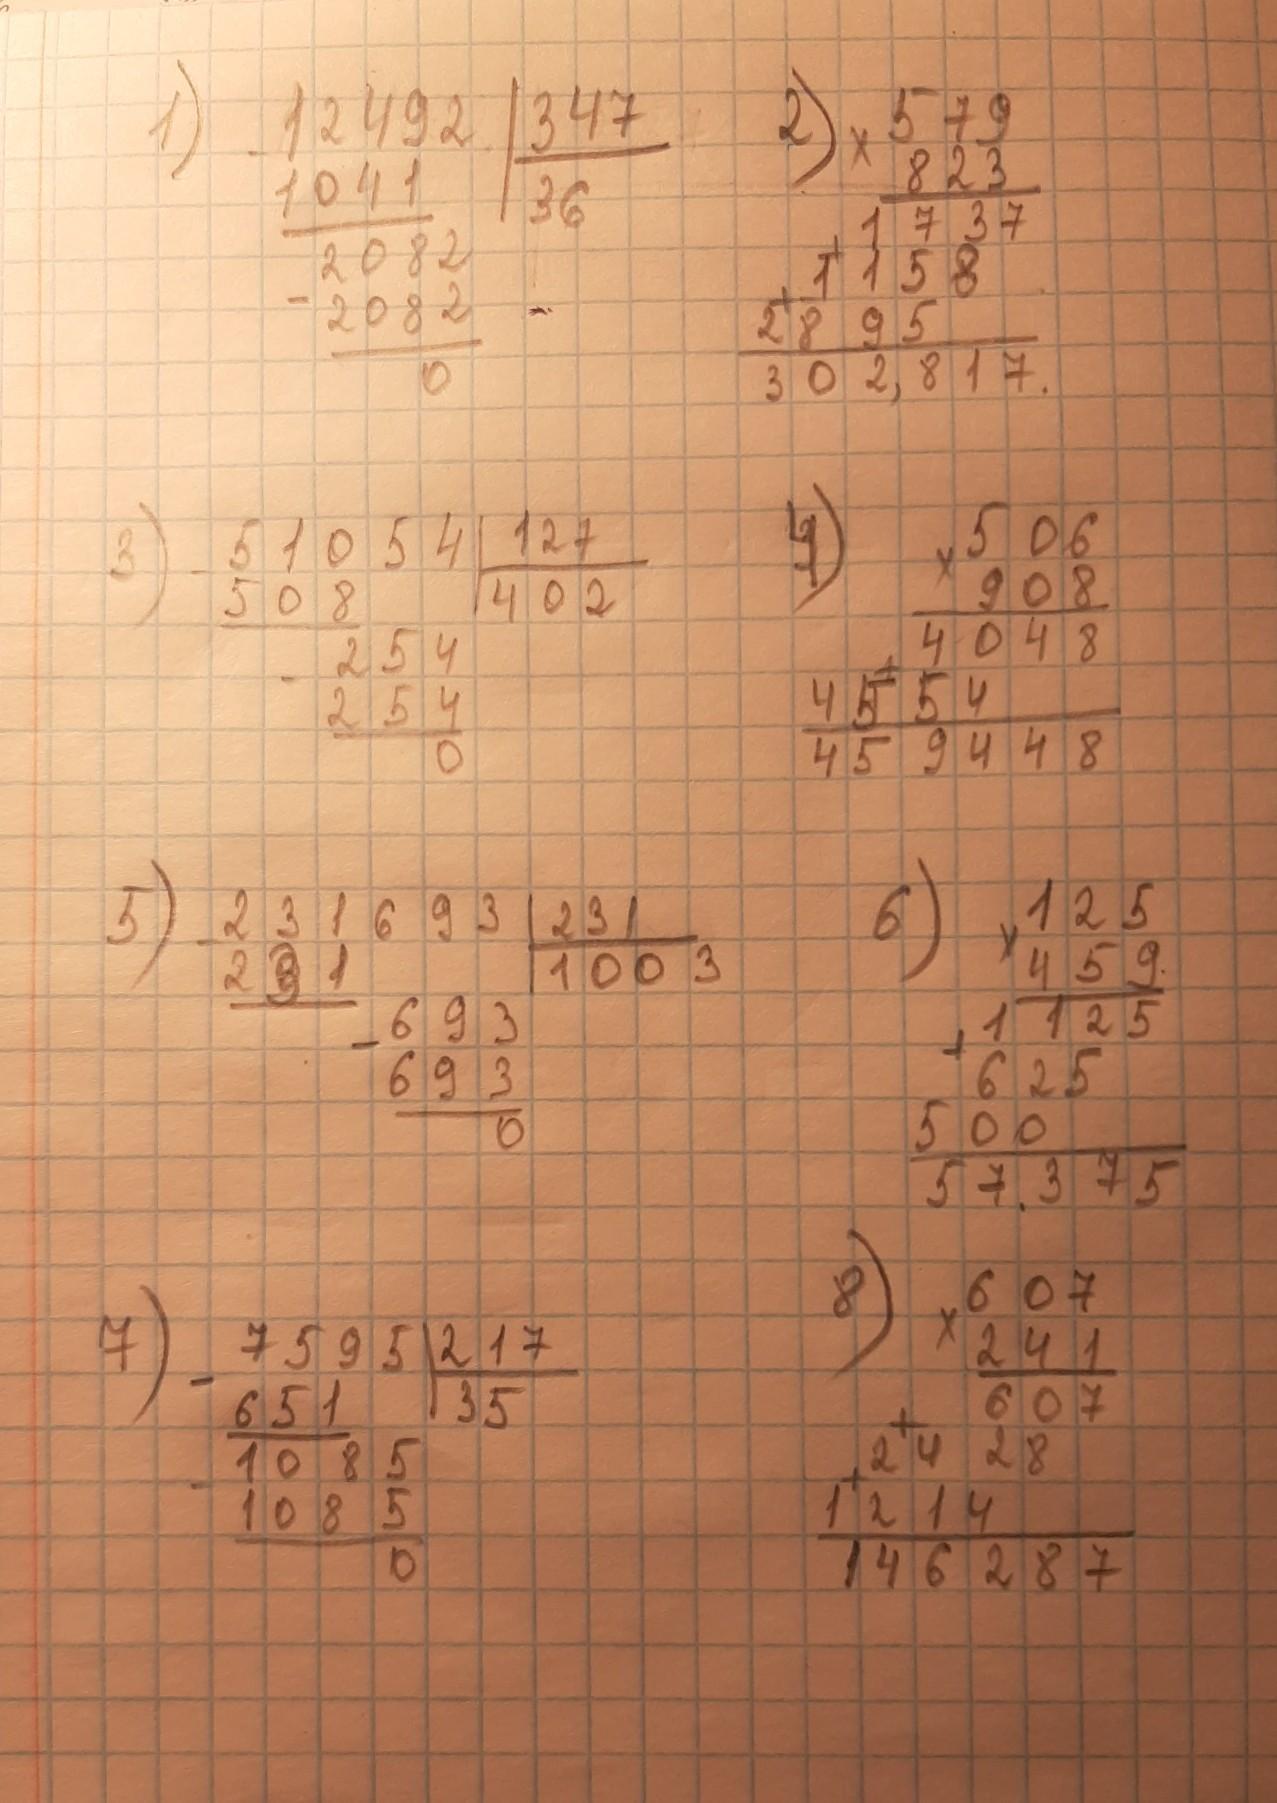 1) - 12492 | 347
1041 | 36
2082
- 2082
0
2) × 579
823
1737
+ 1158
+ 2895
302,817.
3) - 51054 | 127
508 | 402
- 254
254
0
4) × 506
908
4048
+ 4554
459448
5) - 231693 | 231
231 | 1003
- 693
693
0
6) × 125
459.
1125
+ 625
500
57.375
7) - 7595 | 217
651 | 35
- 1085
1085
0
8) × 607
241
607
+ 2428
+ 1214
146287